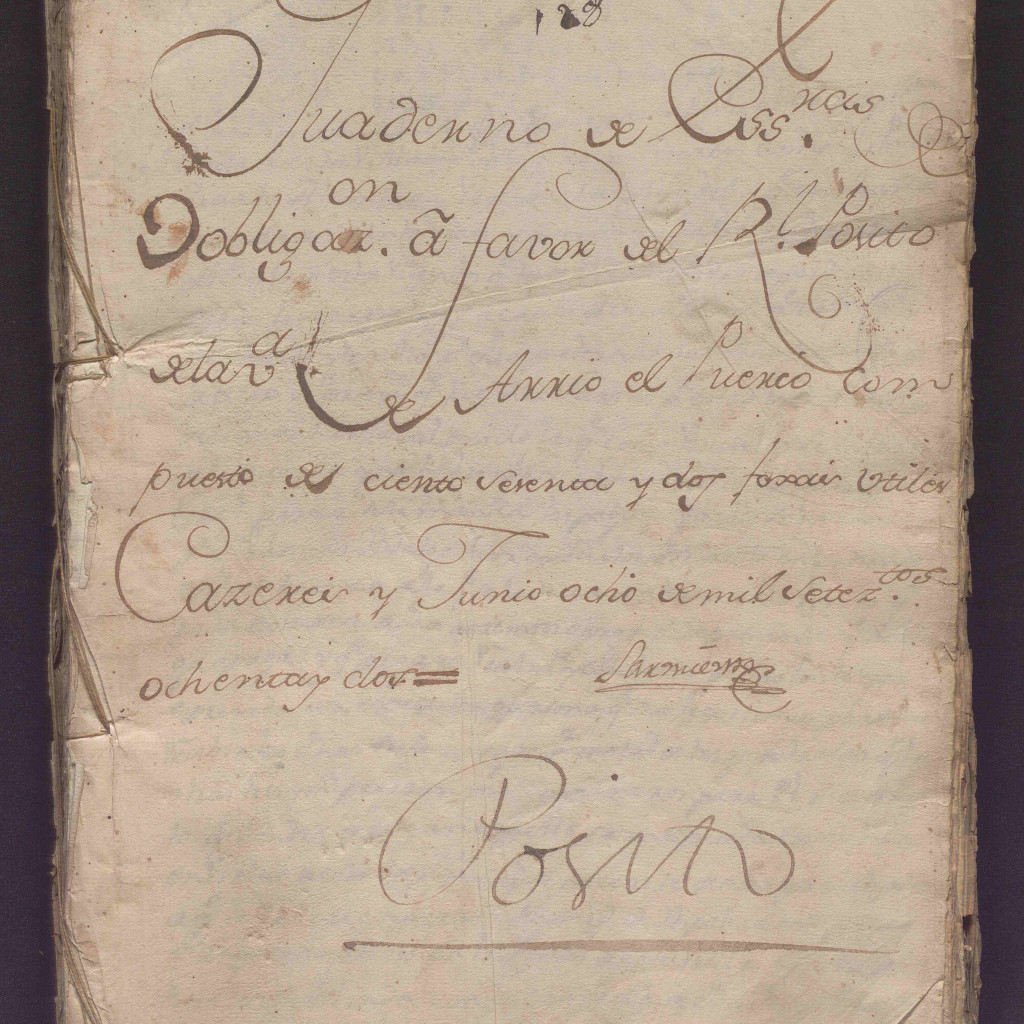 128
Quaderno de Essras.
Dobligazon. á favor del Rl. Posito
dela Va de Arrio el Puerco Com
puesto de ciento sesenta y dos foxas utiles
Cazeres y Junio ocho de mil Seteztos.
ochenta y dos =
Sarmiento
Posito